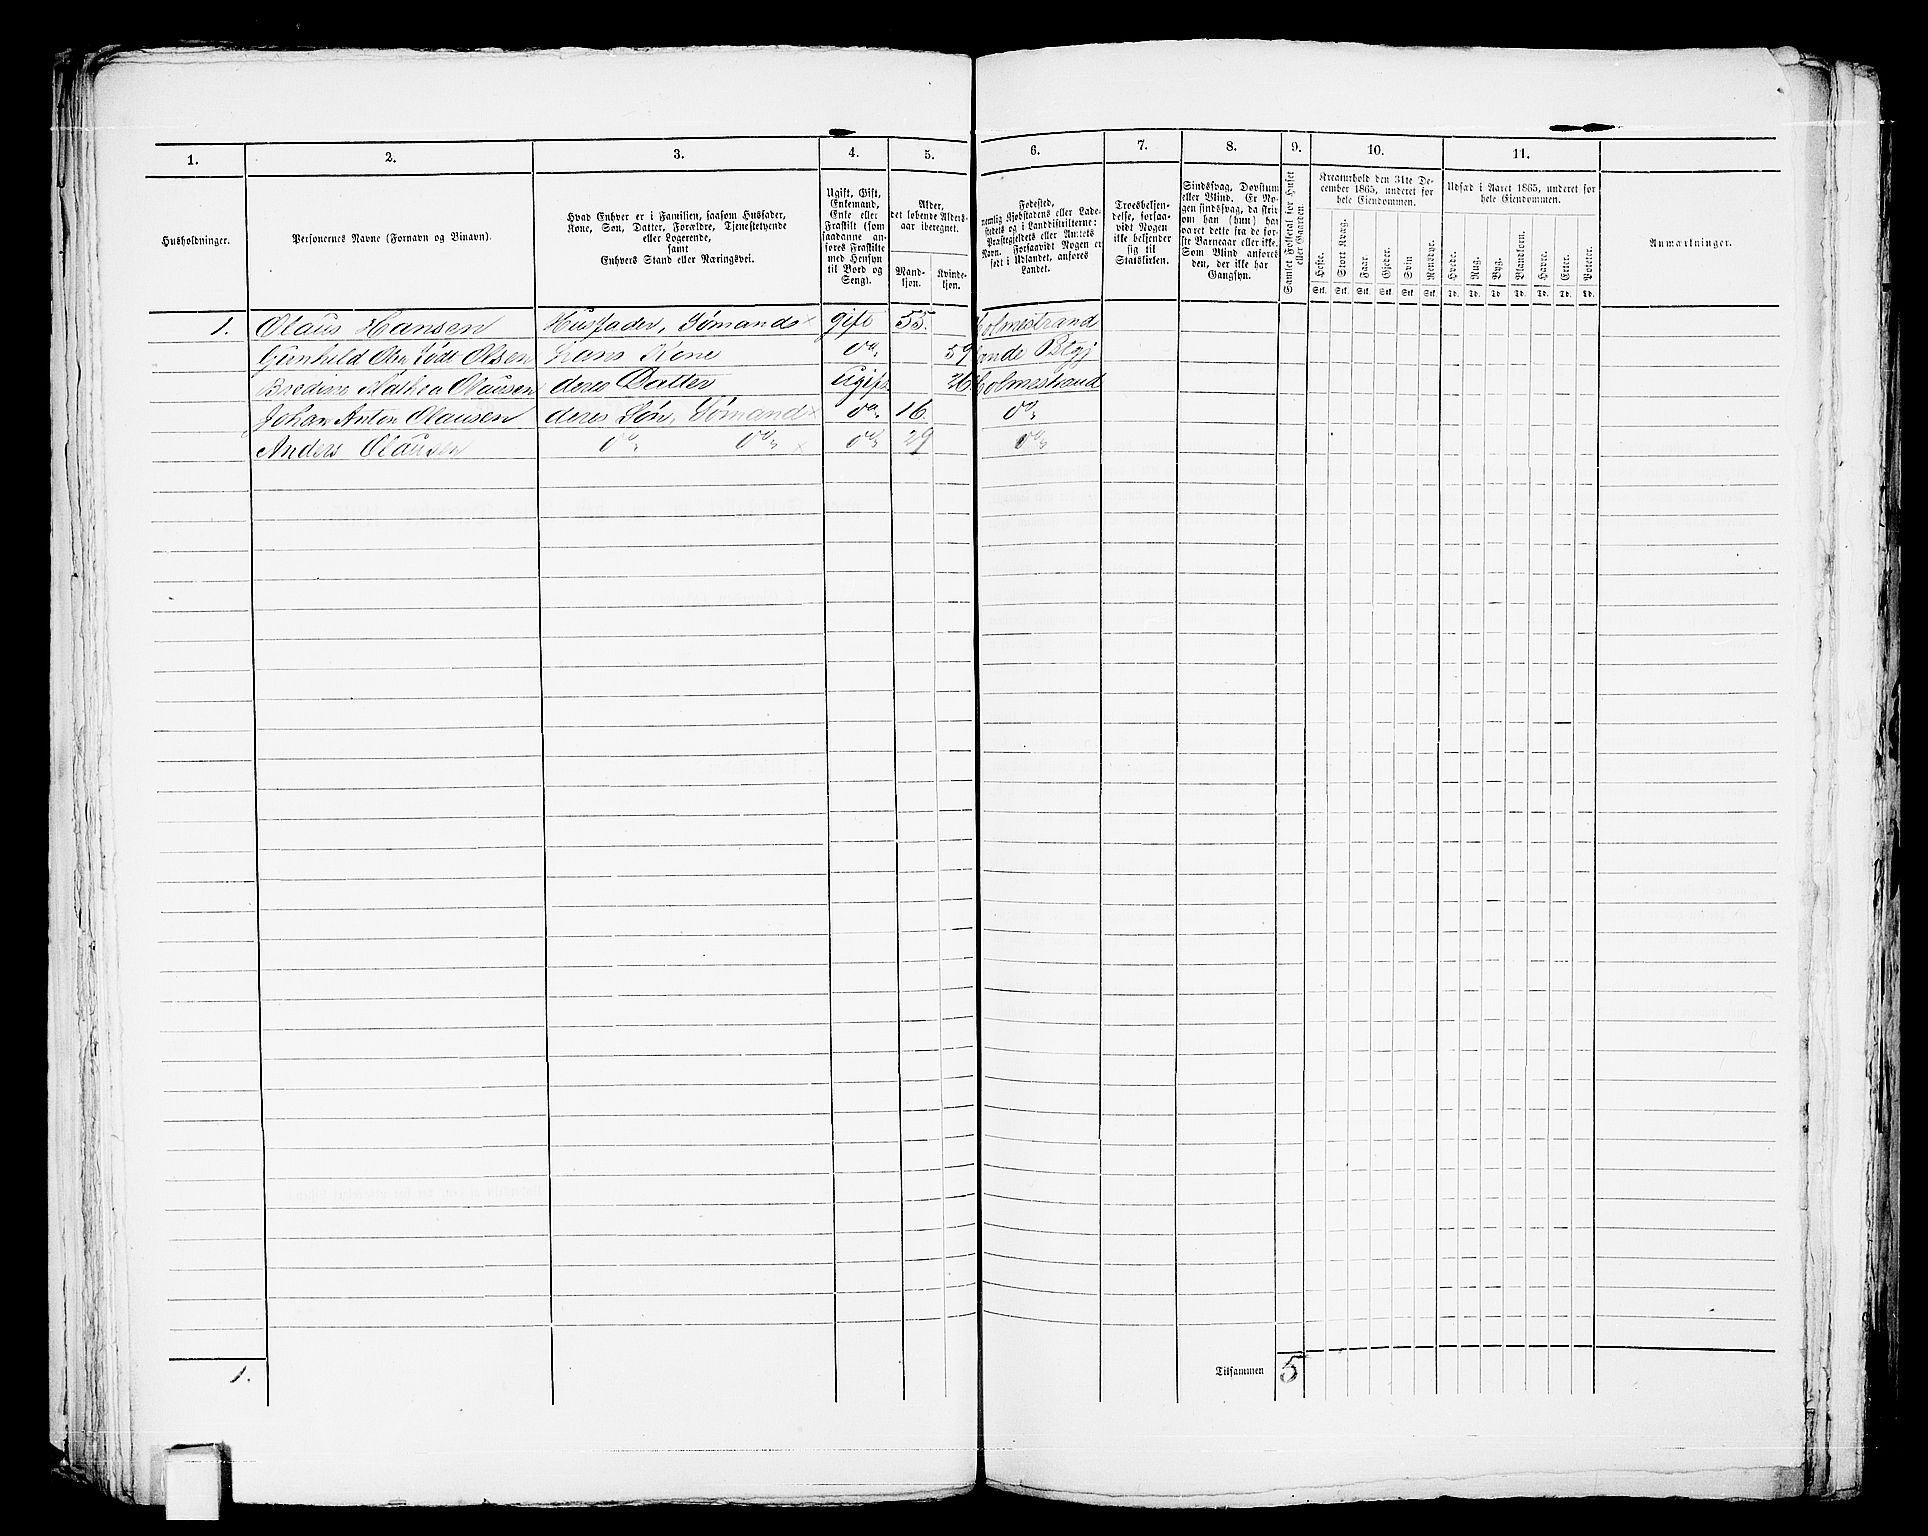 1. 2. 3. 4. 5. 6. 7. 8. 9. 10. 11.
Husholdninger.
Personernes Navne (Fornavn og Binavn).
Hvad Enhver er i Familien, saasom Husfader,
Kone, Søn, Datter, Forældre, Tjenestetyende
eller Logerende,
samt
Enhvers Stand eller Næringsvei.
Ugift, Gift,
Enkemand,
Enke eller
Fraskilt (som
saadanne an-
føres Fraskilte
med Hensyn
til Bord og
Seng).
Alder,
det løbende Alders-
aar iberegnet.
Mand-
kjøn.
Kvinde-
kjøn.
Fødested,
nemlig Kjøbstadens eller Lade-
stedets og i Landdistrikterne:
Præstegjeldets eller Amtets
Navn. Forsaavidt Nogen er
født i Udlandet, anføres
Landet.
Troesbekjen-
delse, forsaa-
vidt Nogen
ikke bekjender
sig til
Statskirken.
Sindssvag, Døvstum
eller Blind. Er No-
gen sindssvag, da skriv
om han (hun) har
været dette fra de før-
ste Barneaar eller ikke.
Som Blind anføres
den, der ikke har
Gangsyn.
Samlet Folketal for Huset
eller Gaarden.
Kreaturhold den 31te De-
cember 1865, underet før
hele Eiendommen.
Heste. Stort Kvæg. Faar. Gjeder. Svin Rensdyr.
Stk. Stk. Stk. Stk. Stk. Stk.
Udsæd i Aaret 1865, underet før
hele Eiendommen.
Hvede. Rug. Byg. Blandkorn. Havre. Erter. Poteter.
Td. Td. Td Td. Td. Td. Td.
Anmærkninger.
1. Olaus Hansen Husfader, Sømand × gift 55. Holmestrand
Gunhild Olea født Olsen hans Kone do 59 Sande Pstgj
Bredine Mathea Olausen deres Datter Ugift 26 Holmestrand
Johan Anton Olausen deres Søn, Sømand × do 16 do
Anders Olausen do do × do 29 do
1. Tilsammen 5